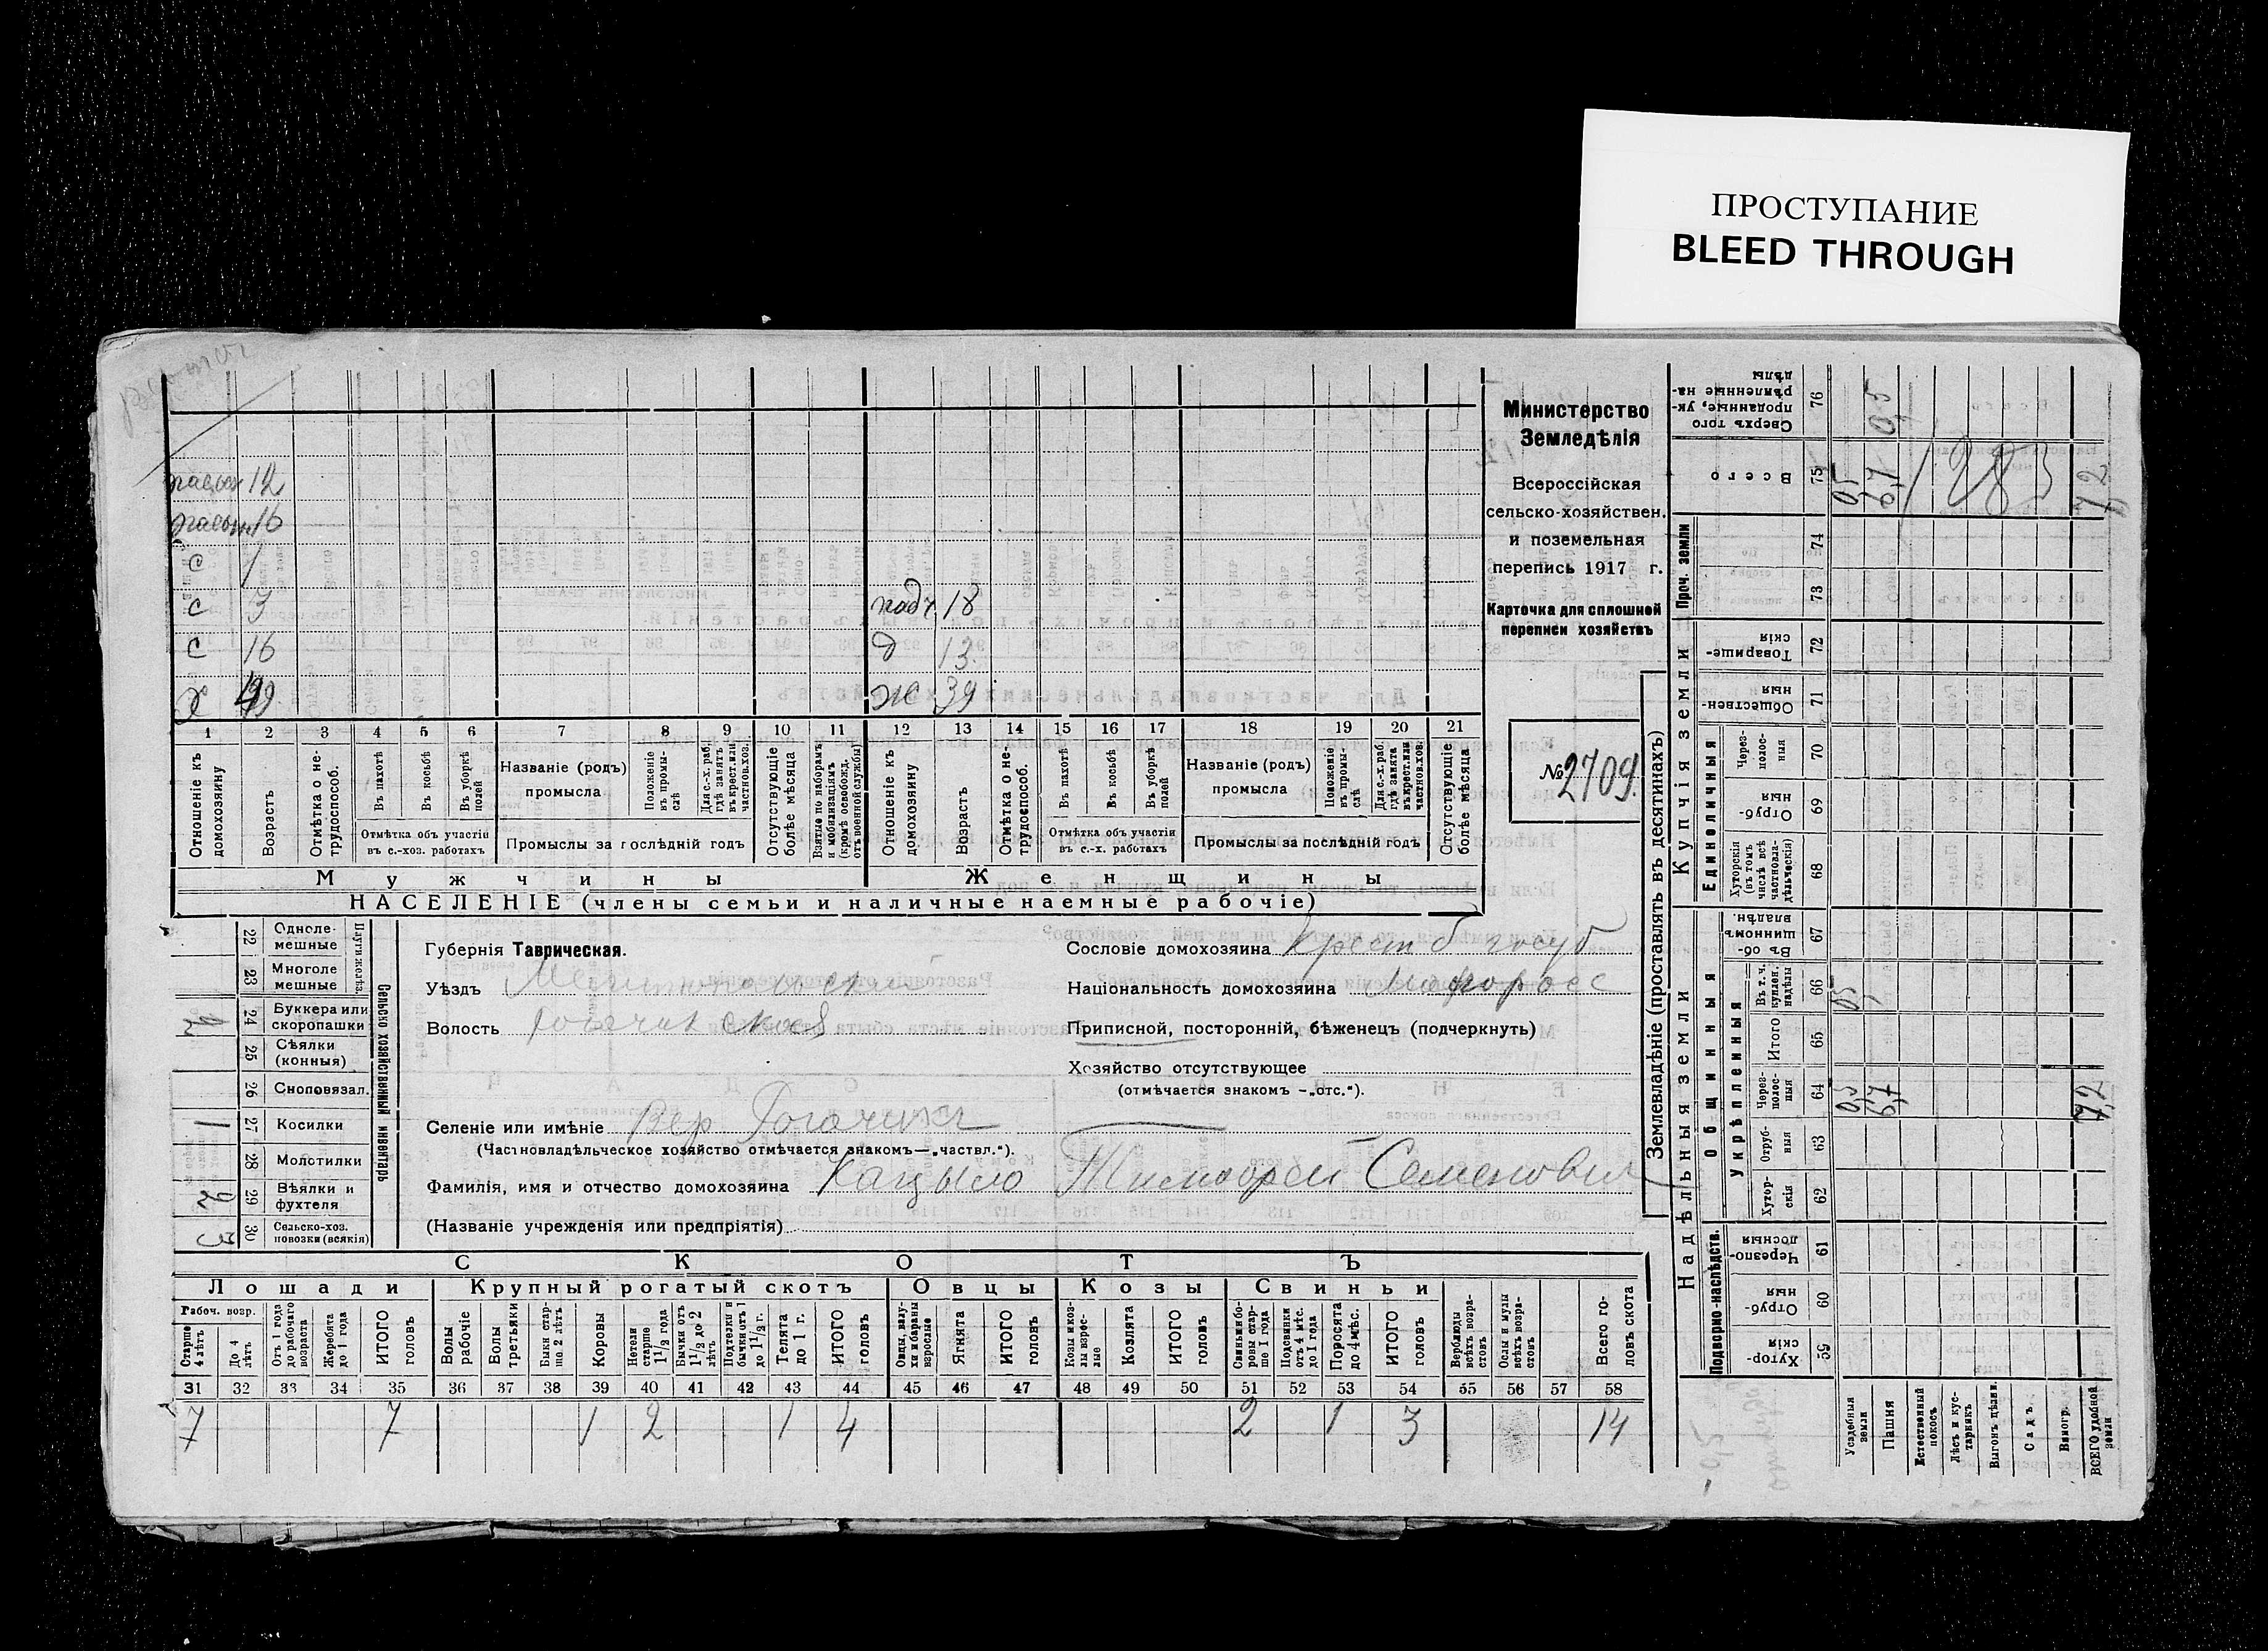 ПРОСТУПАНИЕ
BLEED THROUGH
12
16
С 1
С 3
падч. 18
С 16
д 13
Х
Ж 39
1 2 3 4 5 6 7 8 9 10 11 12 13 14 15 16 17 18 19 20 21
Отношеніе къ домохозяину
Возрастъ
Отмѣтка о не-трудоспособ.
Въ пахотѣ
Въ косьбѣ
Въ уборкѣ полей
Отмѣтка объ участіи въ с.-хоз. работахъ
Названіе (родъ) промысла
Положеніе въ промы-слѣ
Для с.-х. раб. гдѣ занятъ въ крест. или частнов. хоз.
Промыслы за послѣдній годъ
Отсутствующіе болѣе мѣсяца
Взятые по наборамъ и мобилизаціямъ (кромѣ освобожд. отъ военной службы)
Отношеніе къ домохозяину
Возрастъ
Отмѣтка о не-трудоспособ.
Въ пахотѣ
Въ косьбѣ
Въ уборкѣ полей
Отмѣтка объ участіи въ с.-х. работахъ
Названіе (родъ) промысла
Положеніе въ промы-слѣ
Для с.-х. раб. гдѣ занята въ крест. или частнов. хоз.
Промыслы за послѣдній годъ
Отсутствующіе болѣе мѣсяца
Мужчины
Женщины
НАСЕЛЕНІЕ (члены семьи и наличные наемные рабочіе)
Министерство
Земледѣлія
Всероссійская
сельско-хозяйствен.
и поземельная
перепись 1917 г.
Карточка для сплошной
переписи хозяйствъ
№ 2709.
Сельско хозяйственный инвентарь
Плуги желѣз.
22 Одноле-мешные
23 Многоле мешные
24 Буккера или скоропашки
25 Сѣялки (конныя)
26 Сноповязал.
27 Косилки 1
28 Молотилки
29 Вѣялки и фухтеля 2
30 Сельско-хоз. повозки (всякія) 3
Губернія Таврическая.
Уѣздъ Мелитопольскій
Волость Рогачикская
Селеніе или имѣніе Вер Рогачикъ
(Частновладѣльческое хозяйство отмѣчается знакомъ—„частвл.“).
Фамилія, имя и отчество домохозяина Кацыло Тимофей Семенович
(Названіе учрежденія или предпріятія)
Сословіе домохозяина Крест б госуд
Національность домохозяина Малоросс
Приписной, посторонній, бѣженецъ (подчеркнуть)
Хозяйство отсутствующее
(отмѣчается знакомъ –„отс.“).
СКОТЪ
Лошади
Крупный рогатый скотъ
Овцы
Козы
Свиньи
Рабоч. возр.
Старше 4 лѣтъ
До 4 лѣтъ
Отъ 1 года до рабочаго возраста
Жеребята до 1 года
ИТОГО головъ
Волы рабочіе
Волы третьяки
Быки стар-ше 2 лѣтъ
Коровы
Нетели старше 1 1/2 года
Бычки отъ 1 1/2 до 2 лѣтъ
Подтелки и бычки отъ 1 до 1 1/2 г.
Телята до 1 г.
ИТОГО головъ
Овцы, валу-хи и бараны взрослые
Ягнята
ИТОГО головъ
Козы и коз-лы взрос-лые
Козлята
ИТОГО головъ
Свиньи и бо-ровы стар-ше 1 года
Подсвинки отъ 4 мѣс. до 1 года
Поросята до 4 мѣс.
ИТОГО головъ
Верблюды всѣхъ возра-стовъ
Ослы и мулы всѣхъ возра-стовъ
Всего го-ловъ скота
31 32 33 34 35 36 37 38 39 40 41 42 43 44 45 46 47 48 49 50 51 52 53 54 55 56 57 58
7 7 1 2 1 4 2 1 3 14
Землевладѣніе (проставлять въ десятинахъ)
Надѣльныя земли
Купчія земли
Проч. земли
Подворно-наслѣдств.
Общинныя
Укрѣпленныя
Единоличныя
Сверхъ того проданные, ук-рѣпленные на-дѣлы 76
Всего 75
74
73
Товарище-скія 72
Обществен-ныя 71
Через-полос-ныя 70
Отруб-ныя 69
Хуторскія (въ томъ числѣ всѣ частновла-дѣльческія) 68
Въ об-щинномъ владѣн. 67
Въ т. ч. куплен. надѣлы 66
Итого 65
Через-полос-ныя 64
Отруб-ныя 63
Хутор-скія 62
Черезпо-лосныя 61
Отруб-ныя 60
Хутор-скія 59
Усадебныя земли 0,5 0,5 0,5
Пашня 6,7 6,7
Естественный покосъ
Лѣсъ и кус-тарникъ
Выгонъ цѣлин.
Садъ.
Виногр.
ВСЕГО удобной земли 7,2 7,2